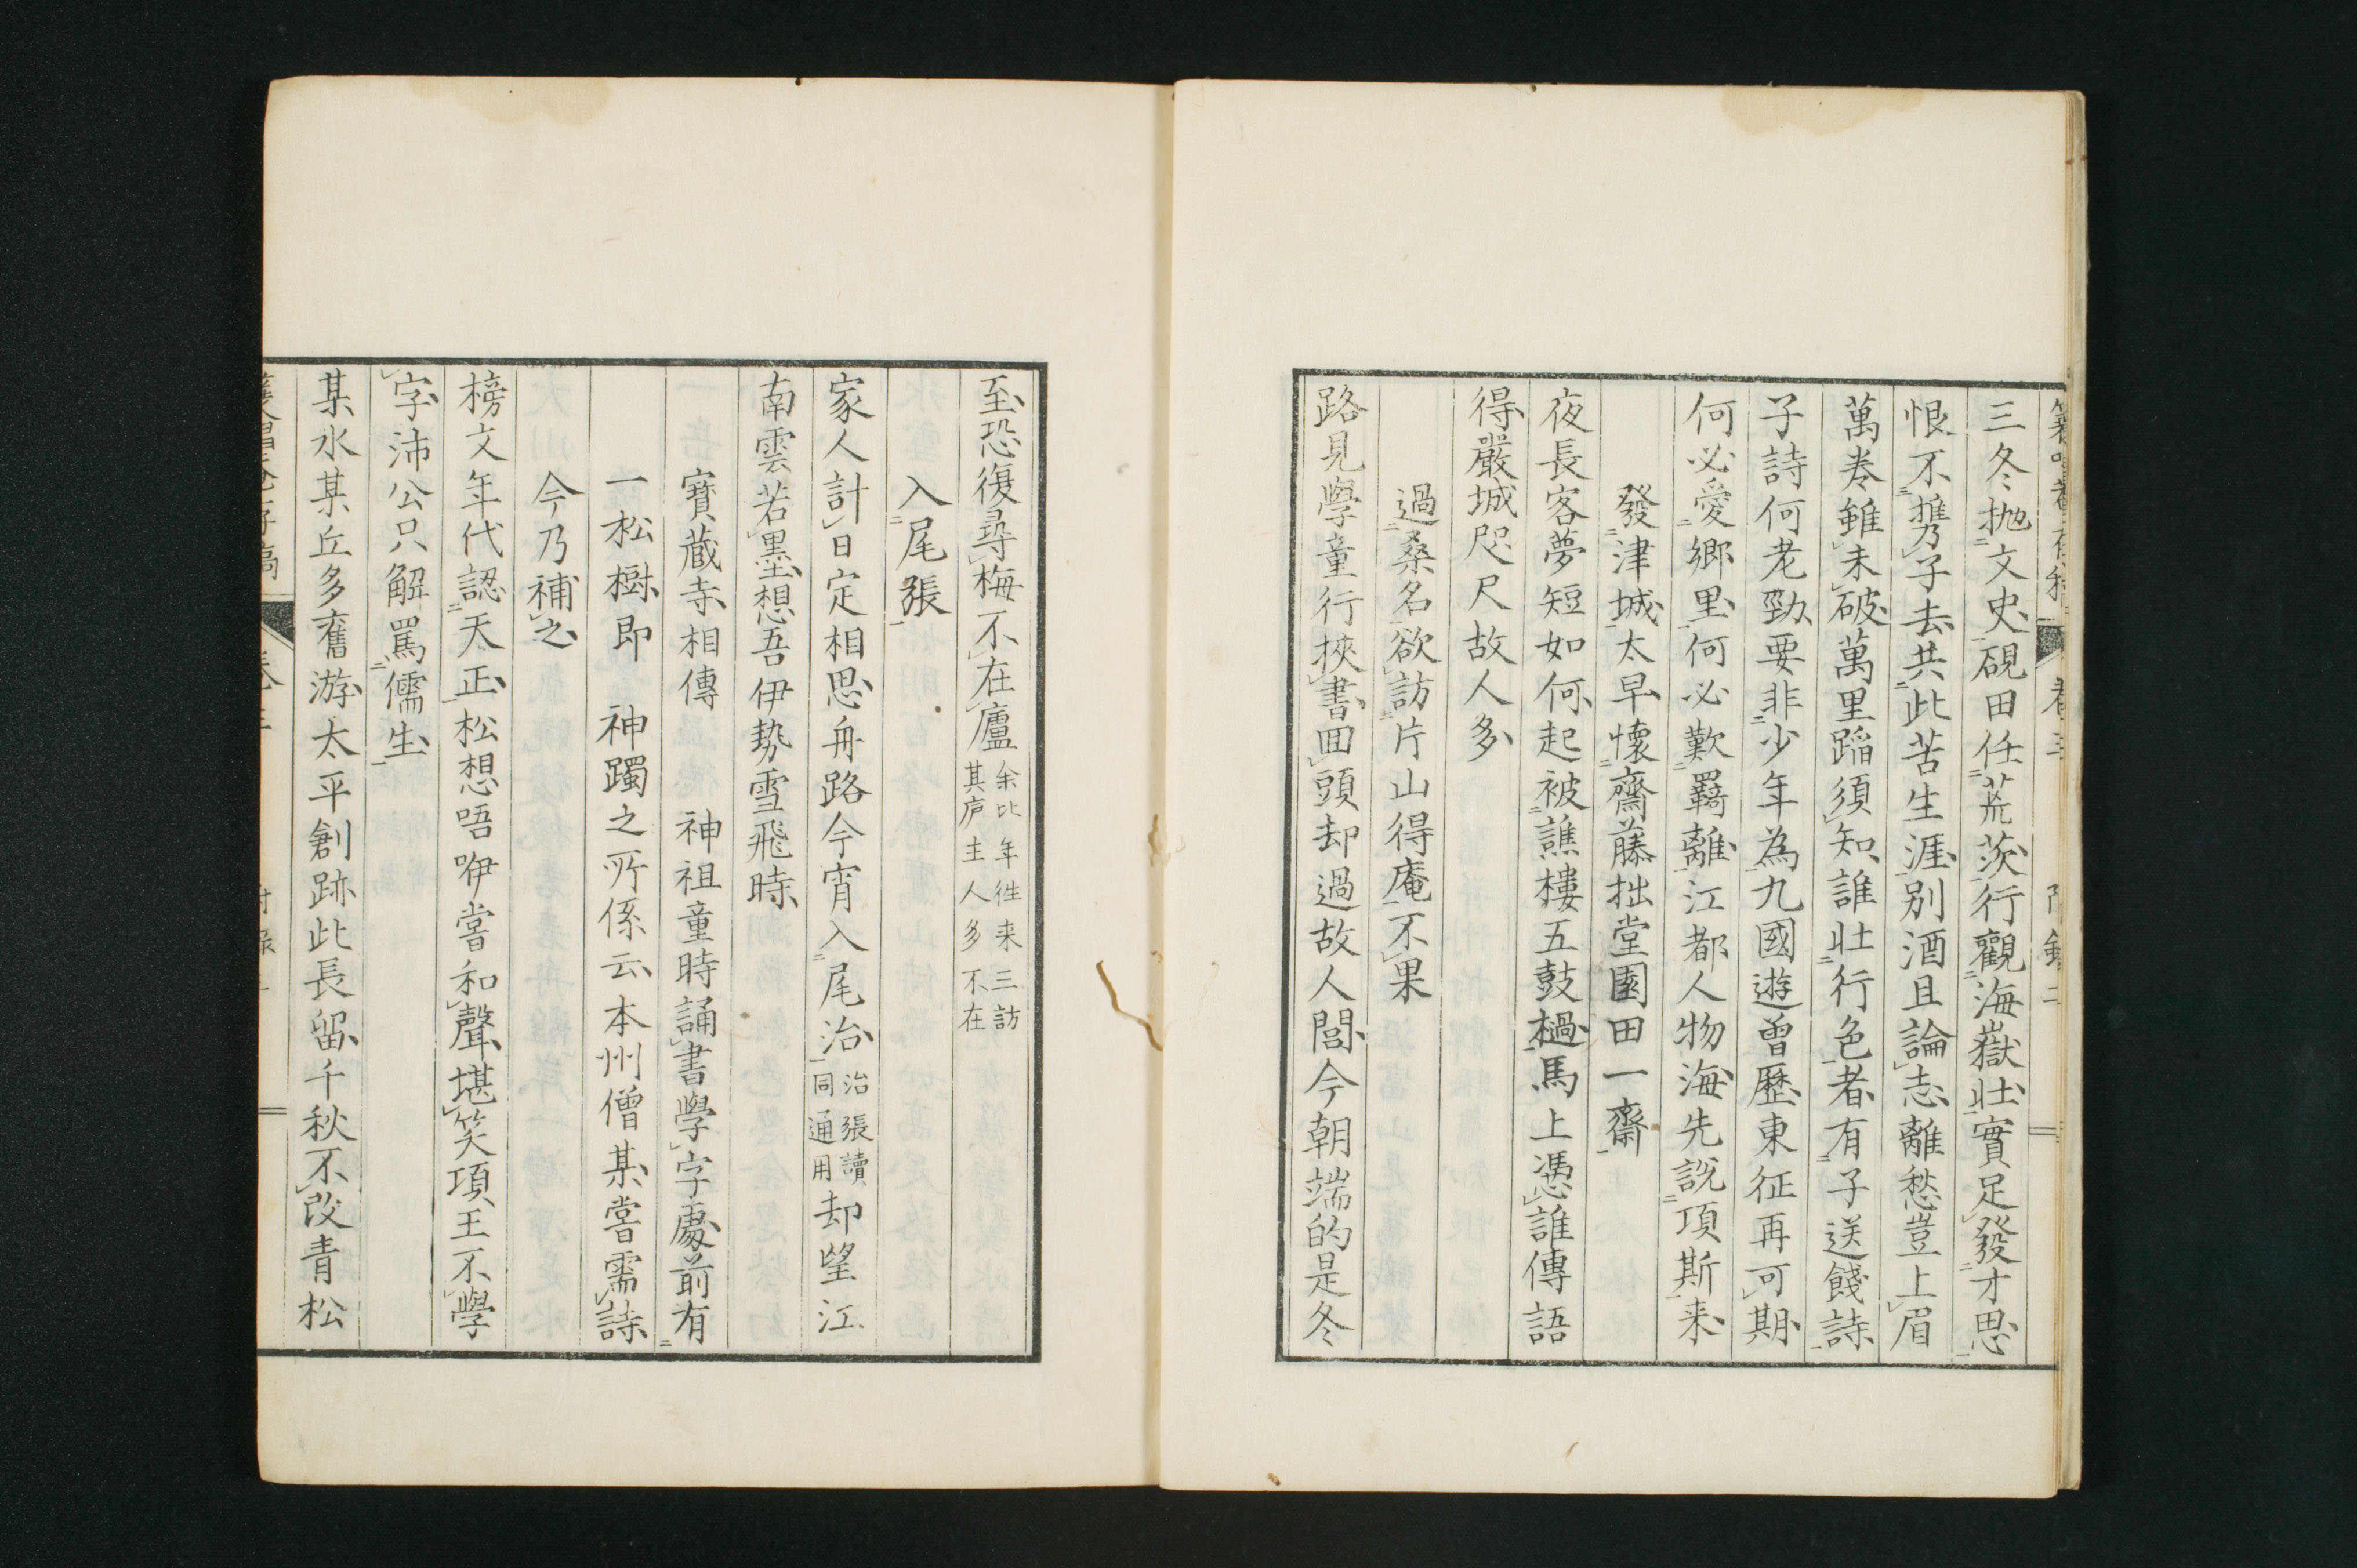 三冬抛文史硯田任荒茨行觀海嶽壯實足發才思
恨不携子去共此苦生涯別酒且論志離愁豈上眉
萬卷雖未破萬里蹈須知誰壯行色者有子送餞詩
子詩何老勁要非少年為九國遊曾歷東征再可期
何必愛鄉里何必歎羇離江都人物海先說項斯来
發津城太早懷齋藤拙堂園田一齋
夜長客夢短如何起被譙樓五鼓檛馬上憑誰傳語
得嚴城咫尺故人多
過桑名欲訪片山得庵不果
路見學童行挾書回頭却過故人閭今朝端的是冬
至恐復尋梅不在廬
余比年往来三訪
其庐主人多不在
入尾張
家人計日定相思舟路今宵入尾治
治張讀
同通用
却望江
南雲若墨想吾伊勢雪飛時
寶蔵寺相傳 神祖童時誦書學字處前有
一松樹即 神躅之所係云本州僧某嘗需詩
今乃補之
榜文年代認天正松想唔咿嘗和聲堪笑項王不學
字沛公只解罵儒生
某水某丘多舊游太平創跡此長留千秋不改青松